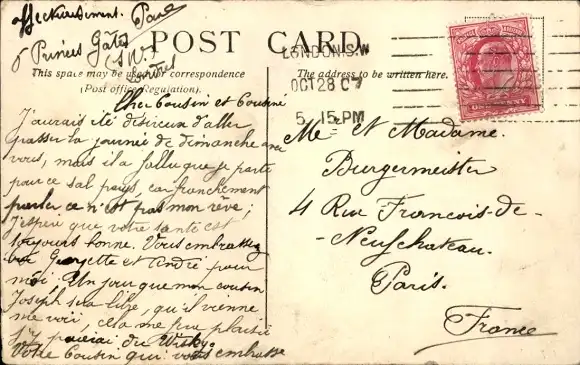 affectueusement. Paul
6 Princes Gate
S.W.
Londres
POST CARD.
This space may be used for correspondence
(Post office Regulation).
The address to be written here.
LONDON.S.W
OCT 28 07
5. 15 PM
Cher Cousin et Cousine
J'aurais été désireux d'aller
passer la journée de dimanche avec
vous, mais il a fallu que je parte
pour ce sal pays, car franchement
parler ce n'est pas mon rêve;
J'espère que votre santé est
toujours bonne. Vous embrassez
Georgette et André pour
moi. Un jour que mon cousin
Joseph sera libre, qu'il vienne
me voir, cela me fera plaisir
J'y paierai du Wisky.
Votre Cousin qui vous embrasse
Mr et Madame.
Burgermeister
4 Rue Francois-de-
-Neufchateau.
Paris.
France